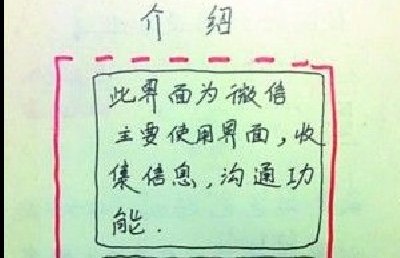 介绍
此界面为微信
主要使用界面，收
集信息，沟通功
能．